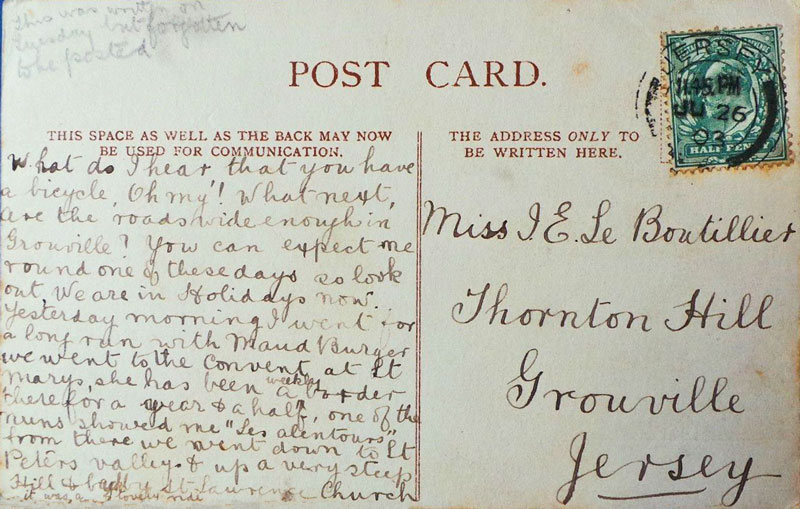 This was written on
Tuesday but forgotten
to be posted
POST CARD.
THIS SPACE AS WELL AS THE BACK MAY NOW
BE USED FOR COMMUNICATION.
What do I hear that you have
a bicycle, Oh my! What next,
are the roads wide enough in
Grouville? You can expect me
round one of these days so look
out, We are in Holidays now.
Yesterday morning I went for
a long run with Maud Burger
we went to the convent at St
Marys, she has been a weekly border
there for a year & a half, one of the
nuns showed me "Les alentours"
from there we went down to St
Peters valley & up a very steep
Hill & back by St Lawrence Church
it was a lovely ride
THE ADDRESS ONLY TO
BE WRITTEN HERE.
JERSEY
11.45 PM
JU 26
03
HALF PENNY
Miss J. E. Le Boutillier
Thornton Hill
Grouville
Jersey